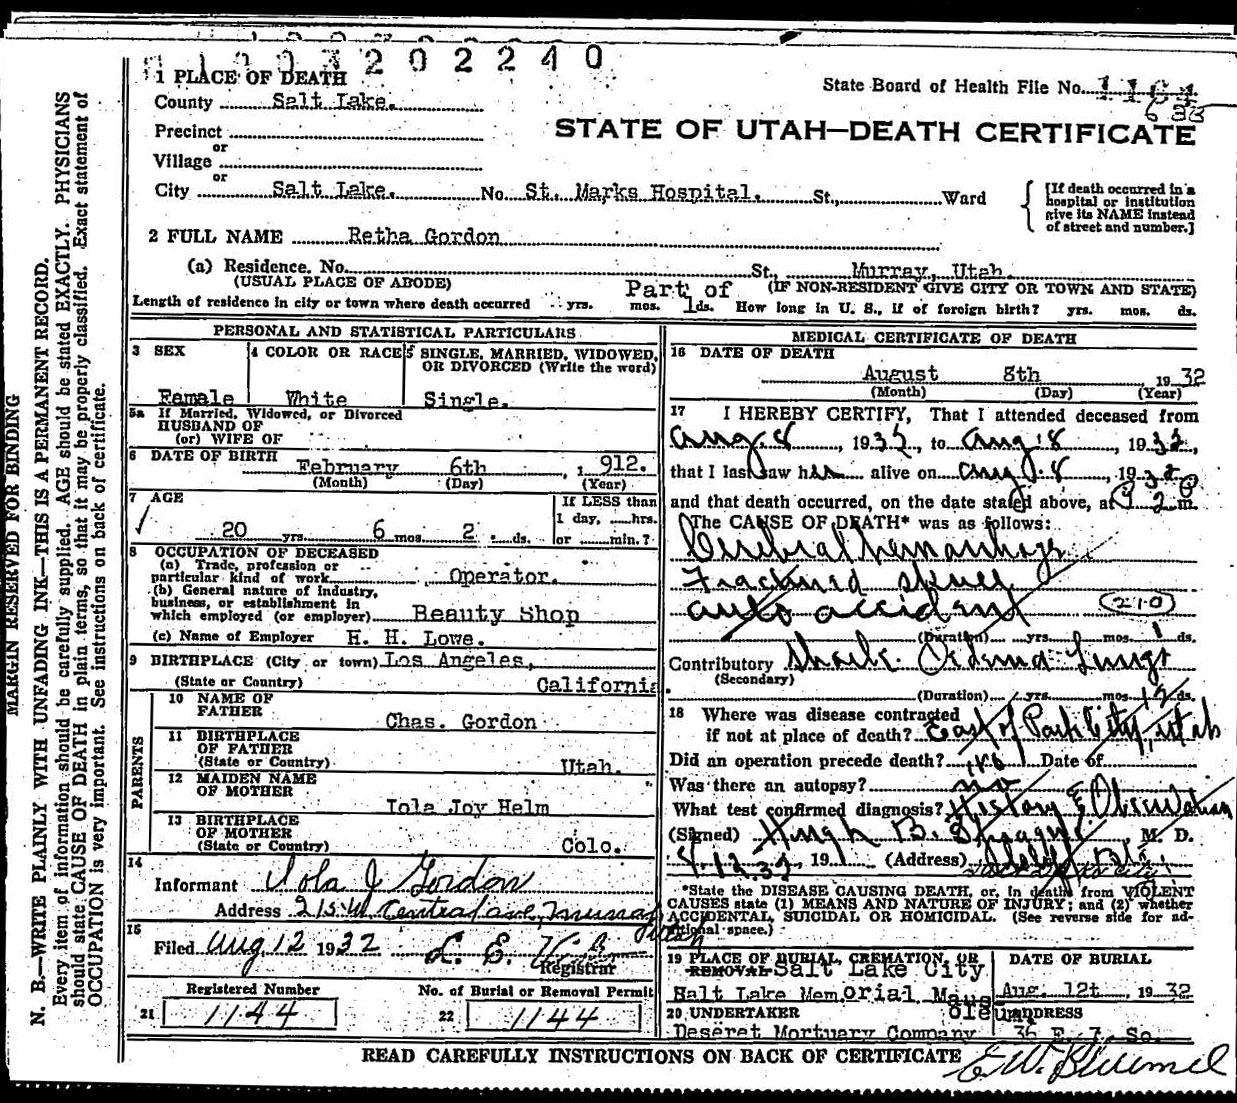 2 0 2 2 4 0
1 PLACE OF DEATH
State Board of Health File No.
County Salt Lake.
STATE OF UTAH—DEATH CERTIFICATE
Precinct
or
Village
or
City Salt Lake. No. St. Marks Hospital. St., Ward
[If death occurred in a hospital or institution give its NAME instead of street and number.]
2 FULL NAME Retha Gordon
(a) Residence. No. St., Murray, Utah.
(USUAL PLACE OF ABODE) (IF NON-RESIDENT GIVE CITY OR TOWN AND STATE)
Part of
Length of residence in city or town where death occurred yrs. mos. 1 ds. How long in U. S., if of foreign birth? yrs. mos. ds.
PERSONAL AND STATISTICAL PARTICULARS
3 SEX 4 COLOR OR RACE 5 SINGLE, MARRIED, WIDOWED, OR DIVORCED (Write the word)
Female White Single.
5a If Married, Widowed, or Divorced
HUSBAND OF
(or) WIFE OF
6 DATE OF BIRTH
February 6th 1912.
(Month) (Day) (Year)
7 AGE
If LESS than
1 day, hrs.
20 yrs. 6 mos. 2 ds. or min.?
8 OCCUPATION OF DECEASED
(a) Trade, profession or
particular kind of work Operator.
(b) General nature of industry,
business, or establishment in
which employed (or employer) Beauty Shop
(c) Name of Employer H. H. Lowe.
9 BIRTHPLACE (City or town) Los Angeles,
(State or Country) California
PARENTS
10 NAME OF FATHER
Chas. Gordon
11 BIRTHPLACE
OF FATHER
(State or Country) Utah.
12 MAIDEN NAME
OF MOTHER
Iola Joy Helm
13 BIRTHPLACE
OF MOTHER
(State or Country) Colo.
14
Informant Iola J Gordon
Address 215 W. Central ave, Murray Utah
15
Filed Aug 12 1932 L. E.
Registrar
Registered Number No. of Burial or Removal Permit
21 1144 22 1144
MEDICAL CERTIFICATE OF DEATH
16 DATE OF DEATH
August 8th 1932
(Month) (Day) (Year)
17 I HEREBY CERTIFY, That I attended deceased from
Aug. 8, 1932, to Aug. 8, 1932,
that I last saw her alive on Aug. 8, 1932
and that death occurred, on the date stated above, at 2 m.
The CAUSE OF DEATH* was as follows:
Cerebral hemorrhage
Fractured skull
auto accident (210)
(Duration) yrs. mos. 1 ds.
Contributory Shock Oedema Lungs
(Secondary)
(Duration) yrs. mos. 1/2 ds.
18 Where was disease contracted
if not at place of death? East of Park City, Utah
Did an operation precede death? Date of
Was there an autopsy? no
What test confirmed diagnosis? History & Observation
(Signed) Hugh B. M. D.
8.12.32, 19 (Address)
*State the DISEASE CAUSING DEATH, or, in deaths from VIOLENT
CAUSES state (1) MEANS AND NATURE OF INJURY; and (2) whether
ACCIDENTAL, SUICIDAL OR HOMICIDAL. (See reverse side for additional space.)
19 PLACE OF BURIAL, CREMATION, OR REMOVAL DATE OF BURIAL
Salt Lake City
Salt Lake Memorial Mausoleum Aug. 12t, 1932
20 UNDERTAKER ADDRESS
Deseret Mortuary Company 36 E. 7. So.
READ CAREFULLY INSTRUCTIONS ON BACK OF CERTIFICATE
MARGIN RESERVED FOR BINDING
N. B.—WRITE PLAINLY WITH UNFADING INK—THIS IS A PERMANENT RECORD.
Every item of information should be carefully supplied. AGE should be stated EXACTLY. PHYSICIANS
should state CAUSE OF DEATH in plain terms, so that it may be properly classified. Exact statement of
OCCUPATION is very important. See instructions on back of certificate.